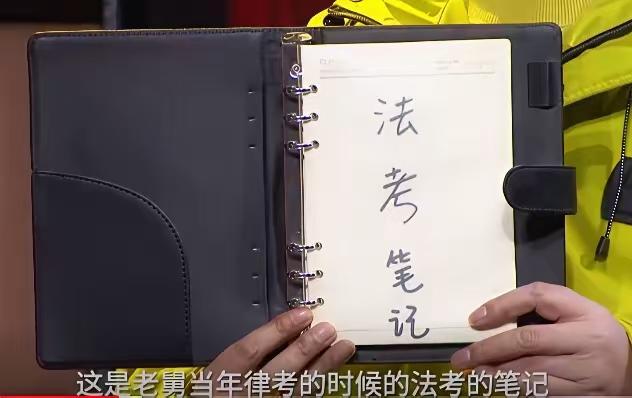 法考笔记
这是老舅当年律考的时候的法考的笔记